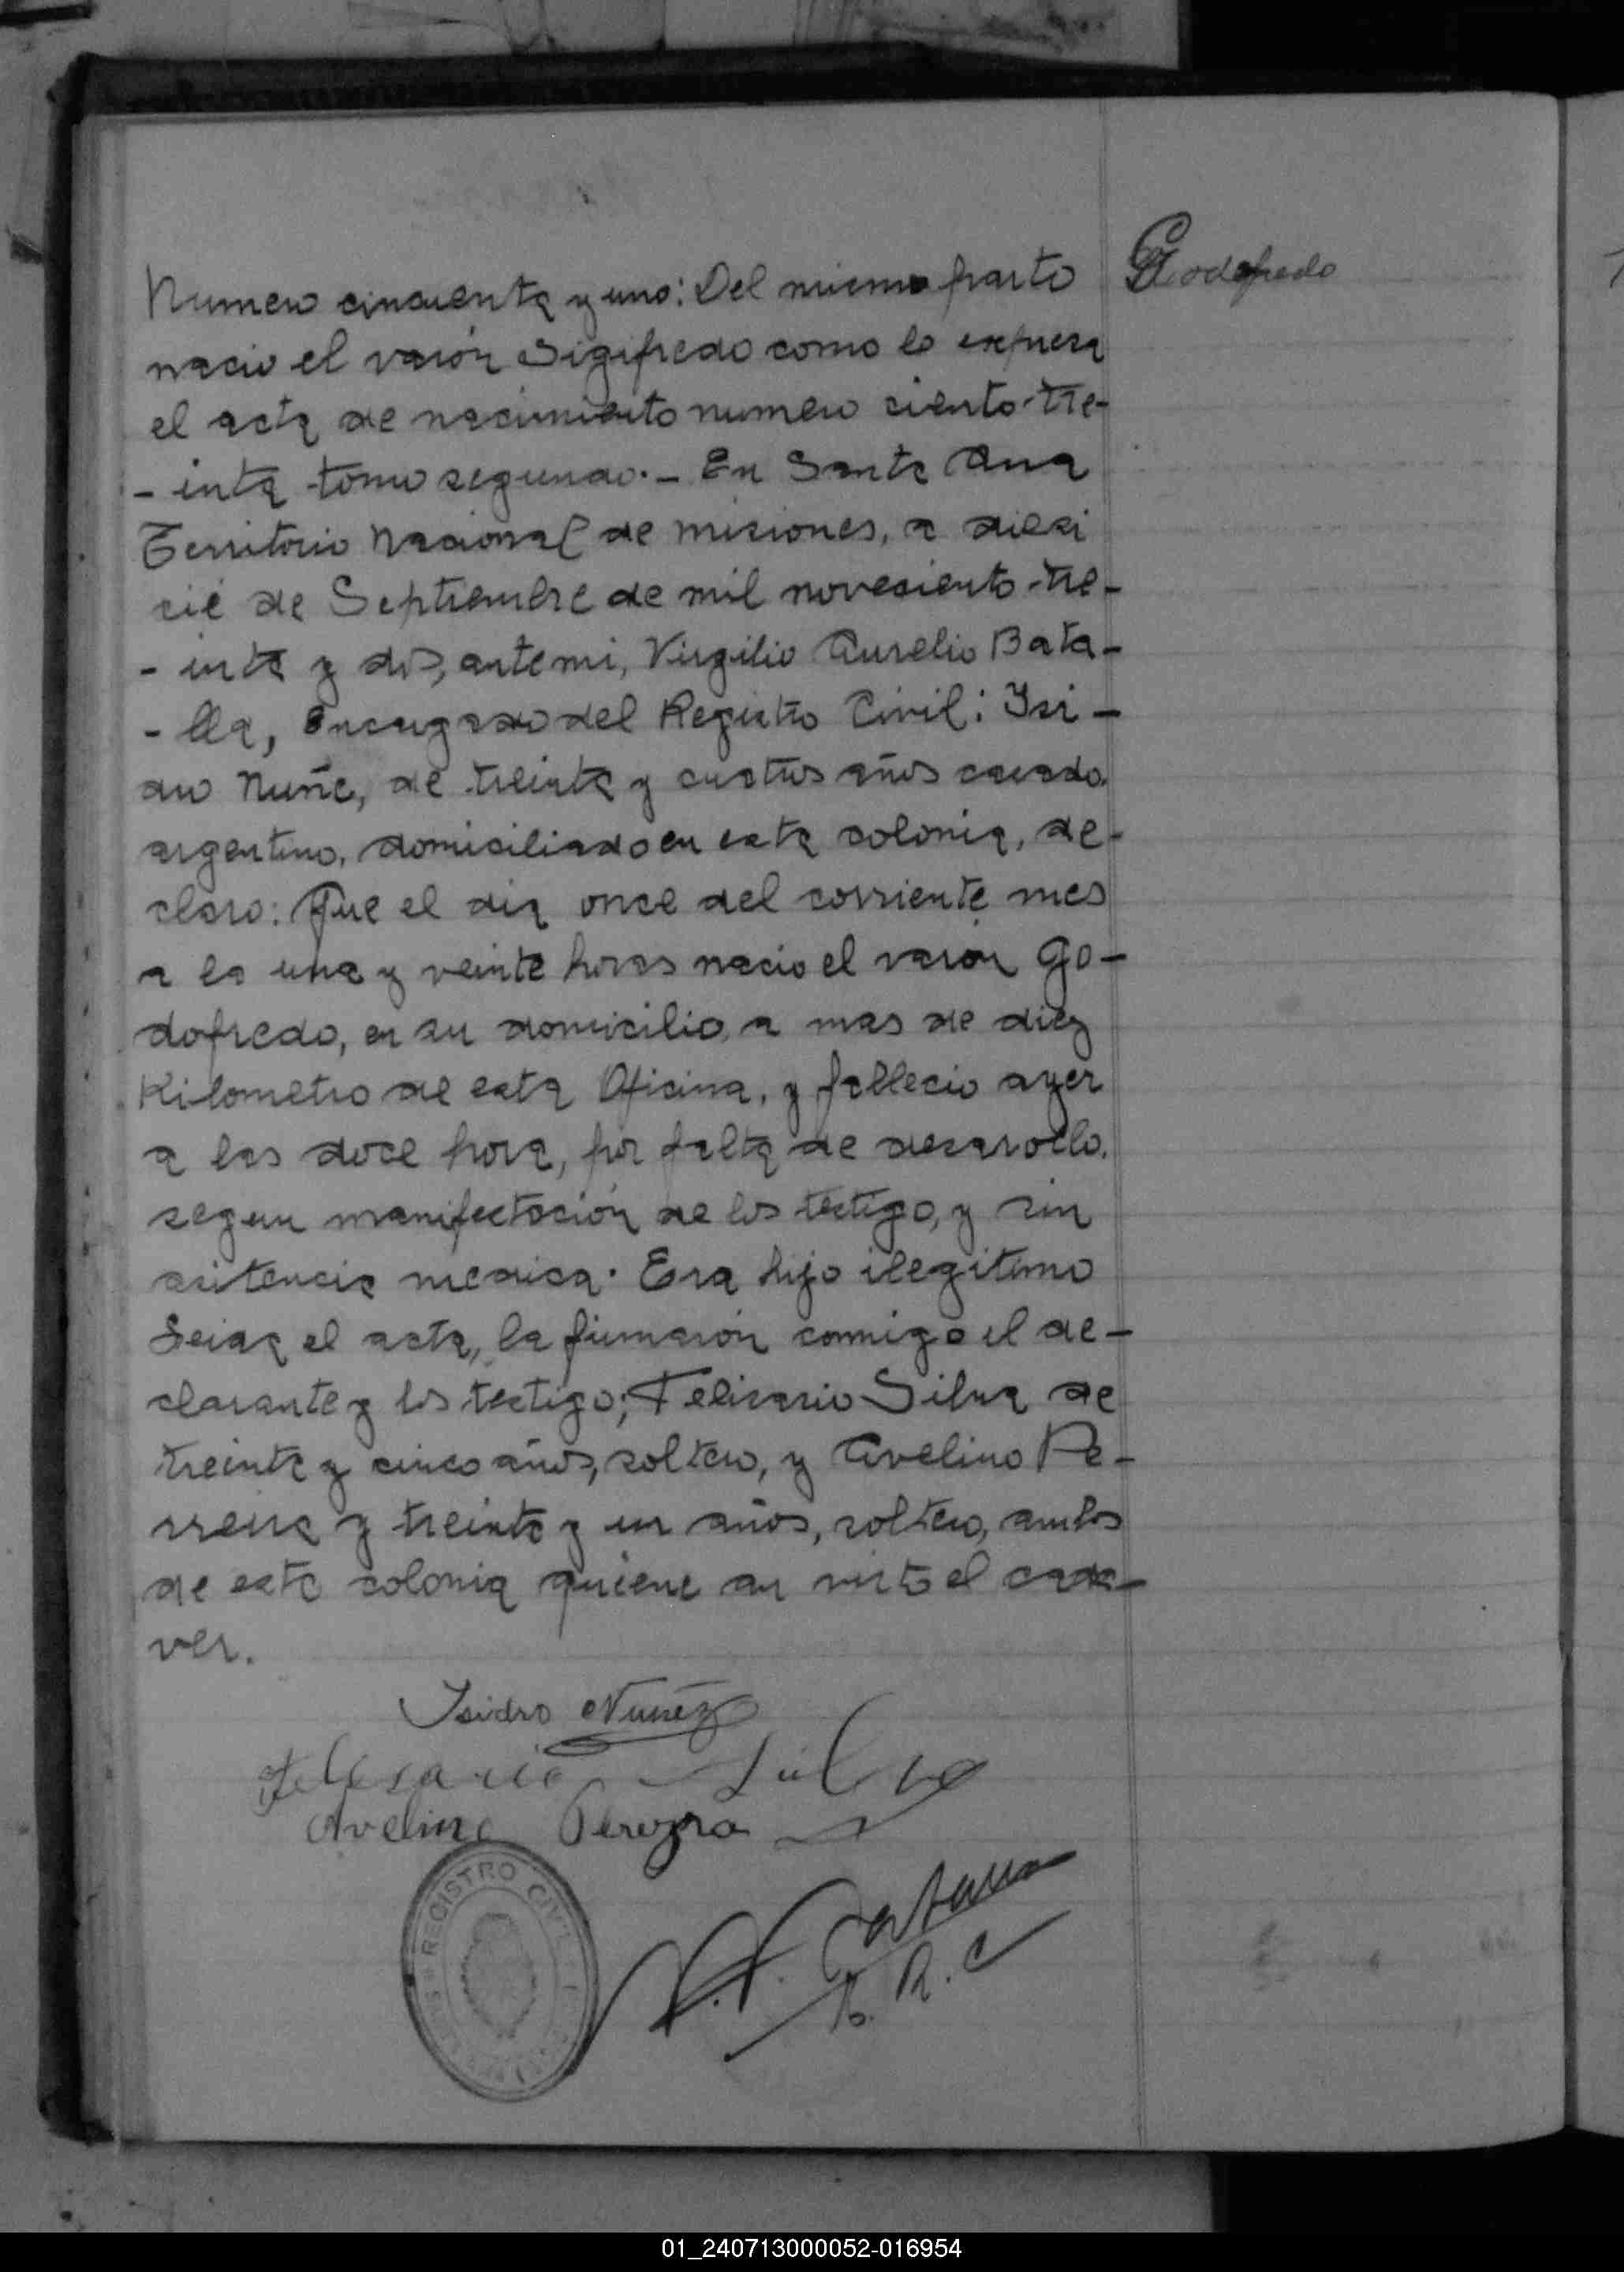 Godofredo
Numero cincuenta y uno: Del mismo parto
nacio el varón Sigifredo como lo expresa
el acta de nacimiento numero ciento tre-
- inta tomo segundo. - En Santa Ana
Territorio Nacional de misiones, a diesi
cié de Septiembre de mil noveciento tre-
- inta y dos, ante mi, Virgilio Aurelio Bata-
- lla, Encargado del Registro Civil: Isi -
dro Nuñe, de treinta y cuatros años casado,
argentino, domiciliado en esta colonia, de-
claro: Que el dia once del corriente mes
a la una y veinte horas nacio el varón Go-
dofredo, en su domicilio, a mas de diez
Kilometro de esta Oficina, y fallecio ayer
a las doce hora, por falta de desarollo,
segun manifestación de los testigo, y sin
asitencia medica. Era hijo ilegitimo
Leida el acta, la firmarón conmigo el de-
clarante y los testigo; Felisario Silva de
treinta y cinco años, soltero, y Avelino Pe-
rreira y treinta y un años, soltero, ambos
de esta colonia quiene an visto el cada-
ver.
Isidro Nuñéz
Felisario Silva
Avelino Pereyra
R. C
REGISTRO CIVIL
01_240713000052-016954